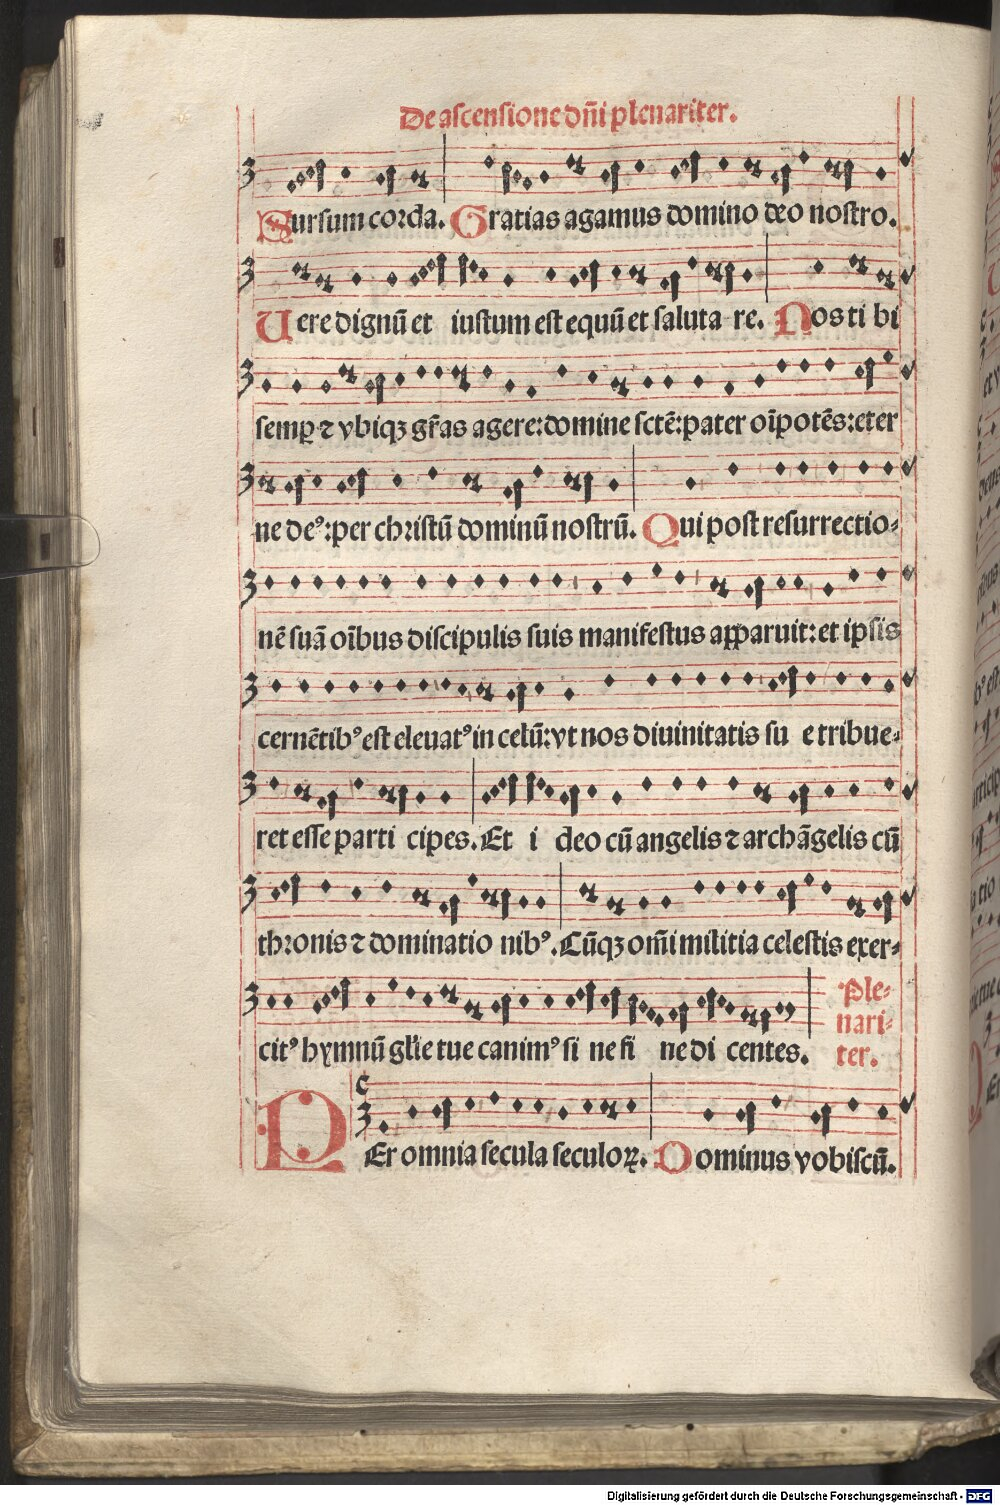 De ascensione dñi plenariter.
Sursum corda. Gratias agamus domino deo nostro.
Uere dignũ et iustum est equũ et saluta re. Nos ti bi
semꝑ ⁊ vbiqꝫ gr̃as agere: domine sctẽ: pater oĩpotẽs: eter
ne deꝰ: per christũ dominũ nostrũ. Qui post resurrectio-
nẽ suã oĩbus discipulis suis manifestus apparuit: et ipsis
cernẽtibꝰ est eleuatꝰ in celũ: vt nos diuinitatis su e tribue-
ret esse parti cipes. Et i deo cũ angelis ⁊ archãgelis cũ
thronis ⁊ dominatio nibꝰ. Cũqꝫ om̃i militia celestis exer-
citꝰ hymnũ gl̃ie tue canimꝰ si ne fi ne di centes.
Ple-
nari-
ter.
PEr omnia secula seculoꝝ. Dominus vobiscũ.
Digitalisierung gefördert durch die Deutsche Forschungsgemeinschaft - DFG